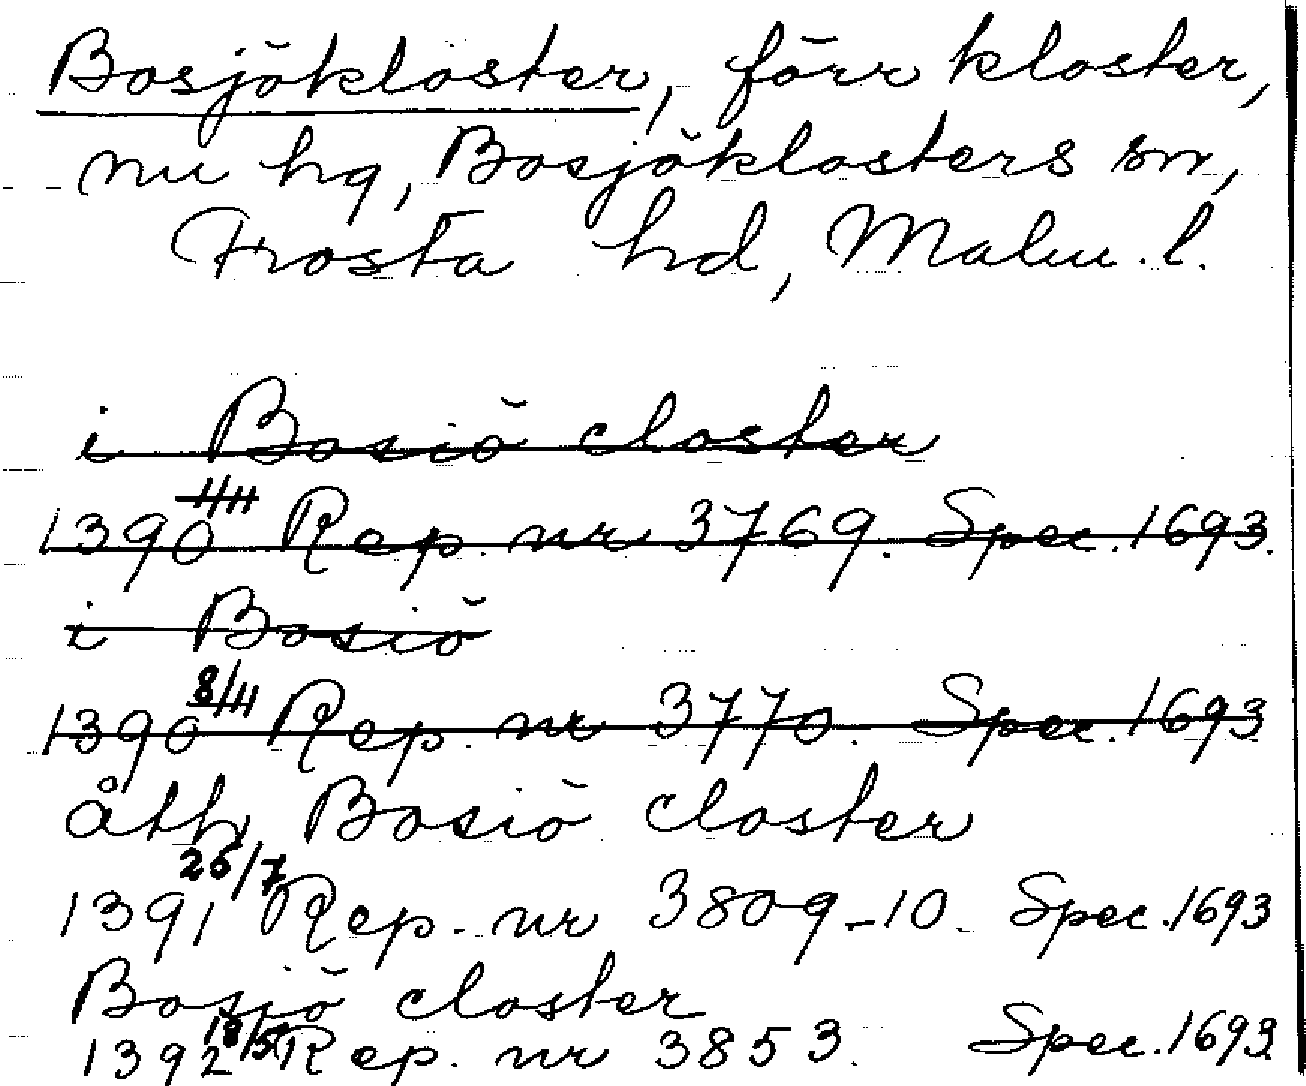 Bosjökloster, förr kloster,
nu hg, Bosjöklosters sn,
Frosta hd, Malm. l.
i Bosiö closter
1390 4/11 Rep. nr 3769. Spec. 1693.
i Bosiö
1390 8/11 Rep. nr 3770. Spec. 1693
åth Bosiö closter
1391 26/7 Rep. nr 3809-10. Spec. 1693
Bosiö closter
1392 18/5 Rep. nr 3853. Spec. 1693.